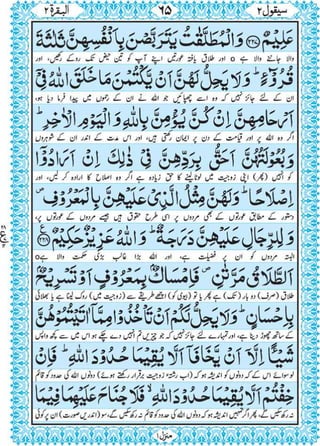 سیقول ۲ ۶۵ البقرة ۲
عَلِیْمٌ ﴿۲۲۷﴾ وَ الْمُطَلَّقٰتُ یَتَرَبَّصْنَ بِاَنْفُسِهِنَّ ثَلٰثَةَ
والا جاننے والا ہے o اور طلاق یافتہ عورتیں اپنے آپ کو تین حیض تک روکے رکھیں، اور
قُرُوْٓءٍ ؕ وَ لَا یَحِلُّ لَهُنَّ اَنْ یَّكْتُمْنَ مَا خَلَقَ اللّٰهُ فِیْۤ
ان کے لئے جائز نہیں کہ وہ اسے چھپائیں جو اللہ نے ان کے رحموں میں پیدا فرما دیا ہو،
اَرْحَامِهِنَّ اِنْ كُنَّ یُؤْمِنَّ بِاللّٰهِ وَ الْیَوْمِ الْاٰخِرِ ؕ
اگر وہ اللہ پر اور قیامت کے دن پر ایمان رکھتی ہیں، اور اس مدت کے اندر ان کے شوہروں
وَ بُعُوْلَتُهُنَّ اَحَقُّ بِرَدِّهِنَّ فِیْ ذٰلِكَ اِنْ اَرَادُوْۤا
کو انہیں (پھر) اپنی زوجیت میں لوٹا لینے کا حق زیادہ ہے اگر وہ اصلاح کا ارادہ کر لیں، اور
اِصْلَاحًا ؕ وَ لَهُنَّ مِثْلُ الَّذِیْ عَلَیْهِنَّ بِالْمَعْرُوْفِ ۪
دستور کے مطابق عورتوں کے بھی مردوں پر اسی طرح حقوق ہیں جیسے مردوں کے عورتوں پر،
وَ لِلرِّجَالِ عَلَیْهِنَّ دَرَجَةٌ ؕ وَ اللّٰهُ عَزِیْزٌ حَكِیْمٌ ﴿۲۲۸﴾
البتہ مردوں کو ان پر فضیلت ہے، اور اللہ بڑا غالب بڑی حکمت والا ہے o
اَلطَّلَاقُ مَرَّتٰنِ ۪ فَاِمْسَاكٌۢ بِمَعْرُوْفٍ اَوْ تَسْرِیْحٌۢ
طلاق (صرف) دو بار (تک) ہے، پھر یا تو (بیوی کو) اچھے طریقے سے (زوجیت میں) روک لینا ہے یا بھلائی
بِاِحْسَانٍ ؕ وَ لَا یَحِلُّ لَكُمْ اَنْ تَاْخُذُوْا مِمَّاۤ اٰتَیْتُمُوْهُنَّ
کے ساتھ چھوڑ دینا ہے، اور تمہارے لئے جائز نہیں کہ جو چیزیں تم انہیں دے چکے ہو اس میں سے کچھ واپس
شَیْـًٔا اِلَّاۤ اَنْ یَّخَافَاۤ اَلَّا یُقِیْمَا حُدُوْدَ اللّٰهِ ؕ فَاِنْ
لو سوائے اس کے کہ دونوں کو اندیشہ ہو کہ (اب رشتۂ زوجیت برقرار رکھتے ہوئے) دونوں اللہ کی حدود کو قائم
خِفْتُمْ اَلَّا یُقِیْمَا حُدُوْدَ اللّٰهِ ۙ فَلَا جُنَاحَ عَلَیْهِمَا فِیْمَا
نہ رکھ سکیں گے، پھر اگر تمہیں اندیشہ ہو کہ دونوں اللہ کی حدود کو قائم نہ رکھ سکیں گے، سو (اندریں صورت) ان پر کوئی
منزل ۱